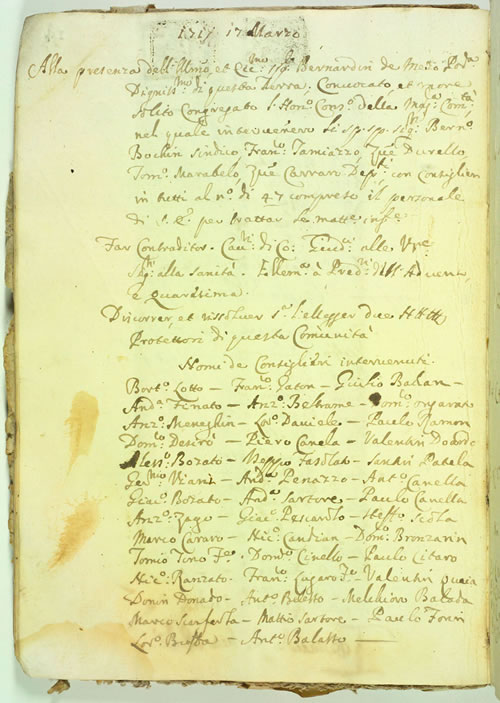 1717 17 Marzo
Alla presenza dell' Illmo, et Ecc:mo Sigr: Bernardin de Mezo Poda
Dignissmo di questa Terra, Convocato et more
solito Congregato l' Honor: Consº: della Magca: Comtà
nel quale intervenero li sp: sp: Sigri: Bernº:
Bochin Sindico, Franº: Tamiazzo, Zuè Durello,
Tomº: Marabelo, Zuè Carraro Deptti: con Consiglieri
in tutti al nº: di 47 compreso il personale
di S. E: per trattar le matte: infte:
Far Contraditor. di Co: alle
alla Sanità. à dell' Advento,
e Quaresima.
Discorrer, et rissolver l'ellegger due
Protettori di questa Comunità
Nomi de Consiglieri intervenuti.
Bortº: Lotto – Franº: Zaton – Giulio Ballan –
Andª: Tinato – Anzº: Beltrame – Domº: Ongarato
Anzº: Meneghin – Lorº: Daniele – Paulo Ramon
Domº: Desirò – Piero Canela – Valentin Dodoro
Alessº: Bozato – Fasolato – Santin Patela
Viani – Andª: Penazzo – Antº: Canella
Giacº: Bozato – Andª: Sartore – Paulo Canella
Anzº: Zago – Giacº: Pescarolo – Steffº: Scola
Marco Cararo – Nic: Candian – Domº: Bronzarin
Tomio Tono Fº: Domº: Cinello – Paulo Citaro
Nicº: Ranzato – Franº: Cugaro – Valentin Quaia
Donin Donado – Antº: Bilesso – Melchioro Balada
Marco Scanferla – Mattio Sartore – Paulo Foran
Lorº: Bussa – Antº: Balasso –